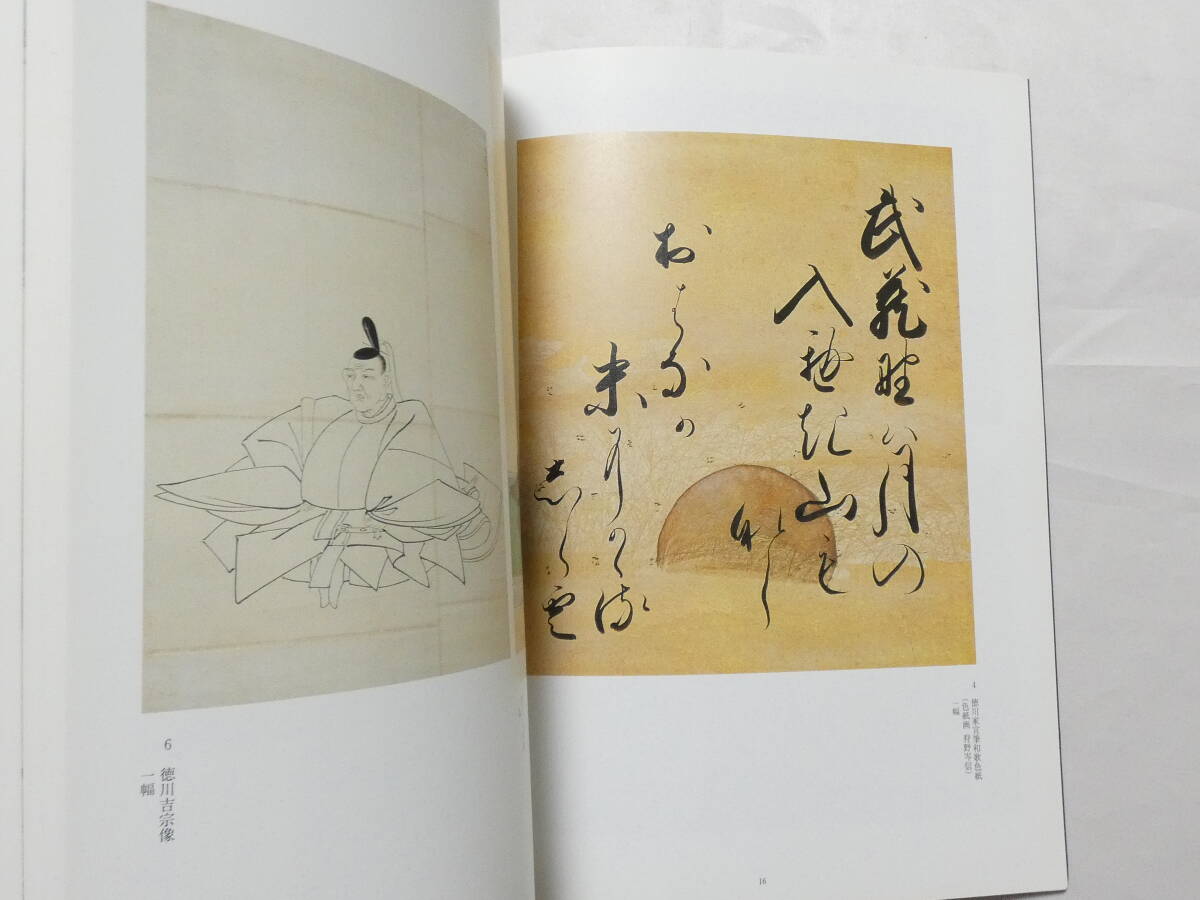 武蔵野ハ月の
入へき山も
なし
おはなか
末にかゝる
志ら雲
4 徳川家宣筆和歌色紙
（色紙画 狩野岑信）
一幅
16
6 徳川吉宗像
一幅